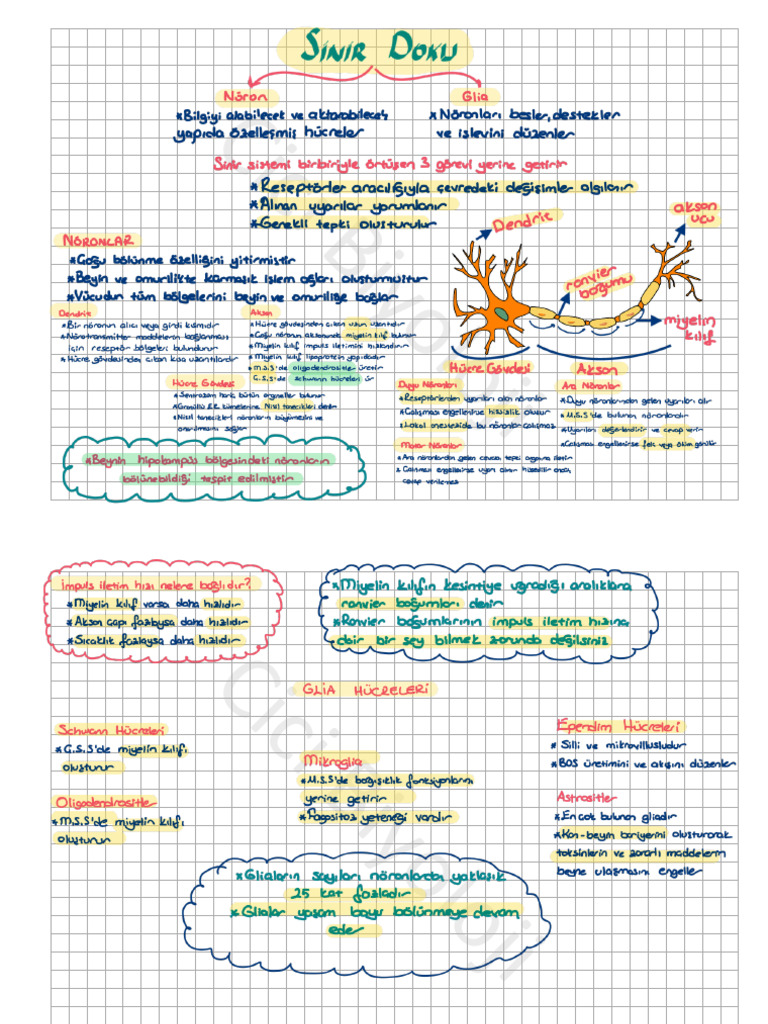 SİNİR DOKU
Nöron
* Bilgiyi alabilecek ve aktarabilecek
yapıda özelleşmiş hücreler
Glia
* Nöronları besler, destekler
ve işlevini düzenler
Sinir sistemi birbiriyle örtüşen 3 görevi yerine getirir
* Reseptörler aracılığıyla çevredeki değişimler algılanır
* Alınan uyarılar yorumlanır
* Gerekli tepki oluşturulur
NÖRONLAR
* Çoğu bölünme özelliğini yitirmiştir
* Beyin ve omurilikte karmaşık işlem ağları oluşturmuştur
* Vücudun tüm bölgelerini beyin ve omuriliğe bağlar
Dendrit
akson
ucu
ranvier
boğumu
miyelin
kılıf
Hücre Gövdesi
Akson
Dendrit
* Bir nöronun alıcı veya girdi kısmıdır
* Nörotransmitter maddelerin bağlanması
için reseptör bölgeleri bulundurur
* Hücre gövdesinden çıkan kısa uzantılardır
Akson
* Hücre gövdesinden çıkan uzun uzantıdır
* Çoğu nöron aksonunda miyelin kılıf bulunur
* Miyelin kılıf impuls iletimini hızlandırır
* Miyelin kılıf lipoprotein yapıdadır
* M.S.S'de oligodendrositler üretir
G.S.S'de schwann hücreleri ür
Hücre Gövdesi
* Sentrozom hariç bütün organeller bulunur
* Granüllü E.R. kümelerine Nissl tanecikleri denir
* Nissl tanecikleri nöronların büyümesini ve
onarılmasını sağlar
* Beynin hipotampüs bölgesindeki nöronların
bölünebildiği tespit edilmiştir
Duyu Nöronları
* Reseptörlerden uyarıları alan nöronlar
* Çalışması engellenirse hissizlik oluşur
* Lokal anestezide bu nöronlar çalışmaz
Motor Nöronlar
* Ara nöronlardan gelen cevabı tepki organına iletir
* Çalışması engellenirse uyarı alınır hissedilir ancak
cevap verilemez
Ara Nöronlar
* Duyu nöronlarından gelen uyarıları alır
* M.S.S'de bulunan nöronlardır
* Uyarıları değerlendirir ve cevap verir
* Çalışması engellenirse felç veya ölüm görülür
İmpuls iletim hızı nelere bağlıdır?
* Miyelin kılıf varsa daha hızlıdır
* Akson çapı fazlaysa daha hızlıdır
* Sıcaklık fazlaysa daha hızlıdır
* Miyelin kılıfın kesintiye uğradığı aralıklara
ranvier boğumları denir
* Ranvier boğumlarının impuls iletim hızına
dair bir şey bilmek zorunda değilsiniz
GLİA HÜCRELERİ
Schwann Hücreleri
* G.S.S'de miyelin kılıfı
oluşturur
Oligodendrositler
* M.S.S'de miyelin kılıfı
oluşturur
Mikroglia
* M.S.S'de bağışıklık fonksiyonlarını
yerine getirir
* Fagositoz yeteneği vardır
Ependim Hücreleri
* Silli ve mikrovillusludur
* BOS üretimini ve akışını düzenler
Astrositler
* En çok bulunan gliadır
* Kan-beyin bariyerini oluşturarak
toksinlerin ve zararlı maddelerin
beyne ulaşmasını engeller
* Gliaların sayıları nöronlardan yaklaşık
25 kat fazladır
* Glialar yaşam boyu bölünmeye devam
eder